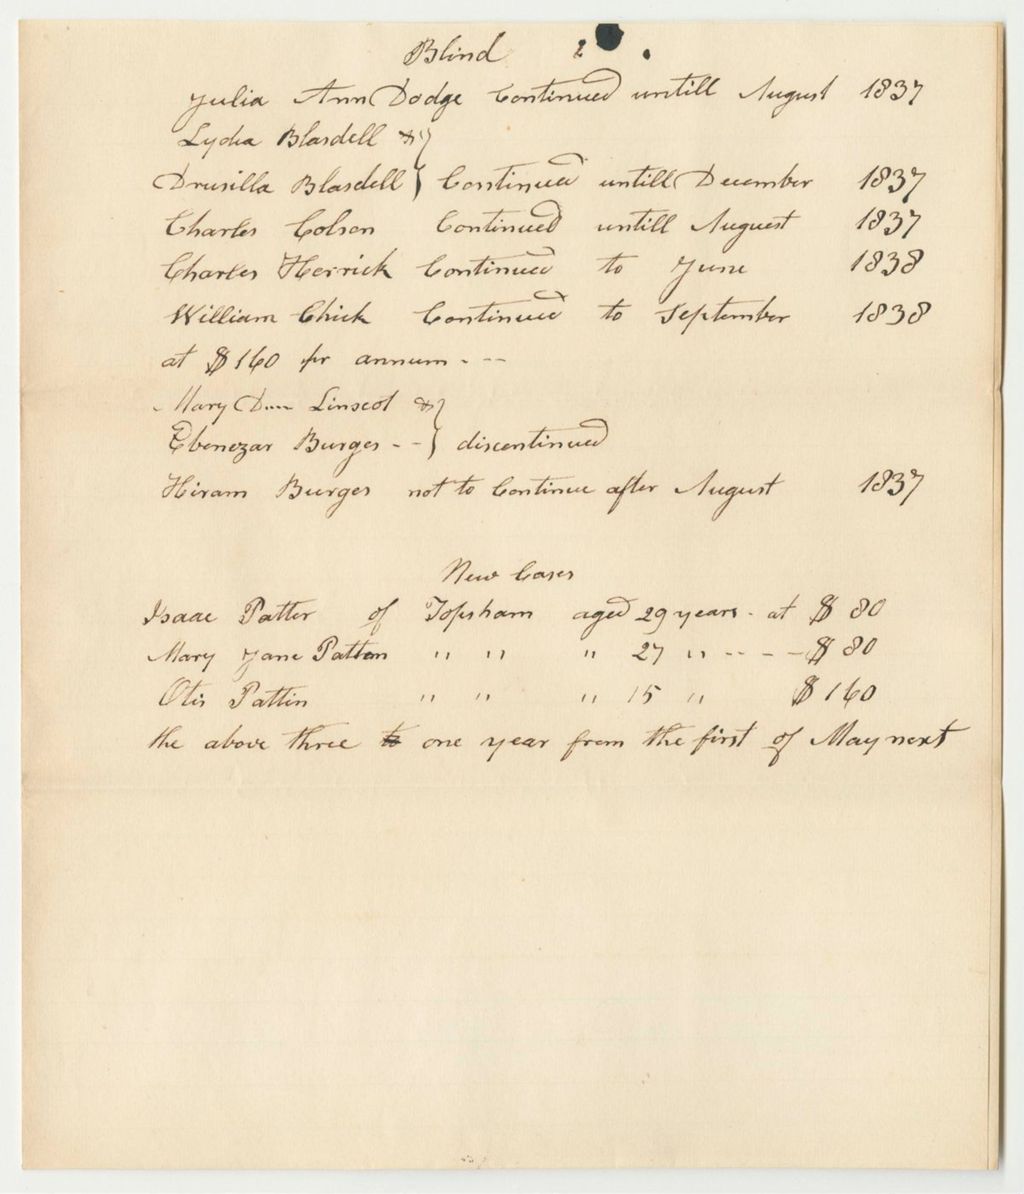 Blind 2
Julia Ann Dodge Continued untill August 1837
Lydia Blasdell &
Drusilla Blasdell } Continued untill December 1837
Charles Colson Continued untill August 1837
Charles Herrick Continued to June 1838
William Chick Continued to September 1838
at $160 pr annum - --
Mary Linscot &
Ebenezar Burges -- } discontinued
Hiram Burges not to Continue after August 1837
New Cases
Isaac Patter of Topsham aged 29 years - at $80
Mary Jane Patten " " " 27 " -- - - $80
Otis Pattin " " " 15 " $160
the above three to one year from the first of May next